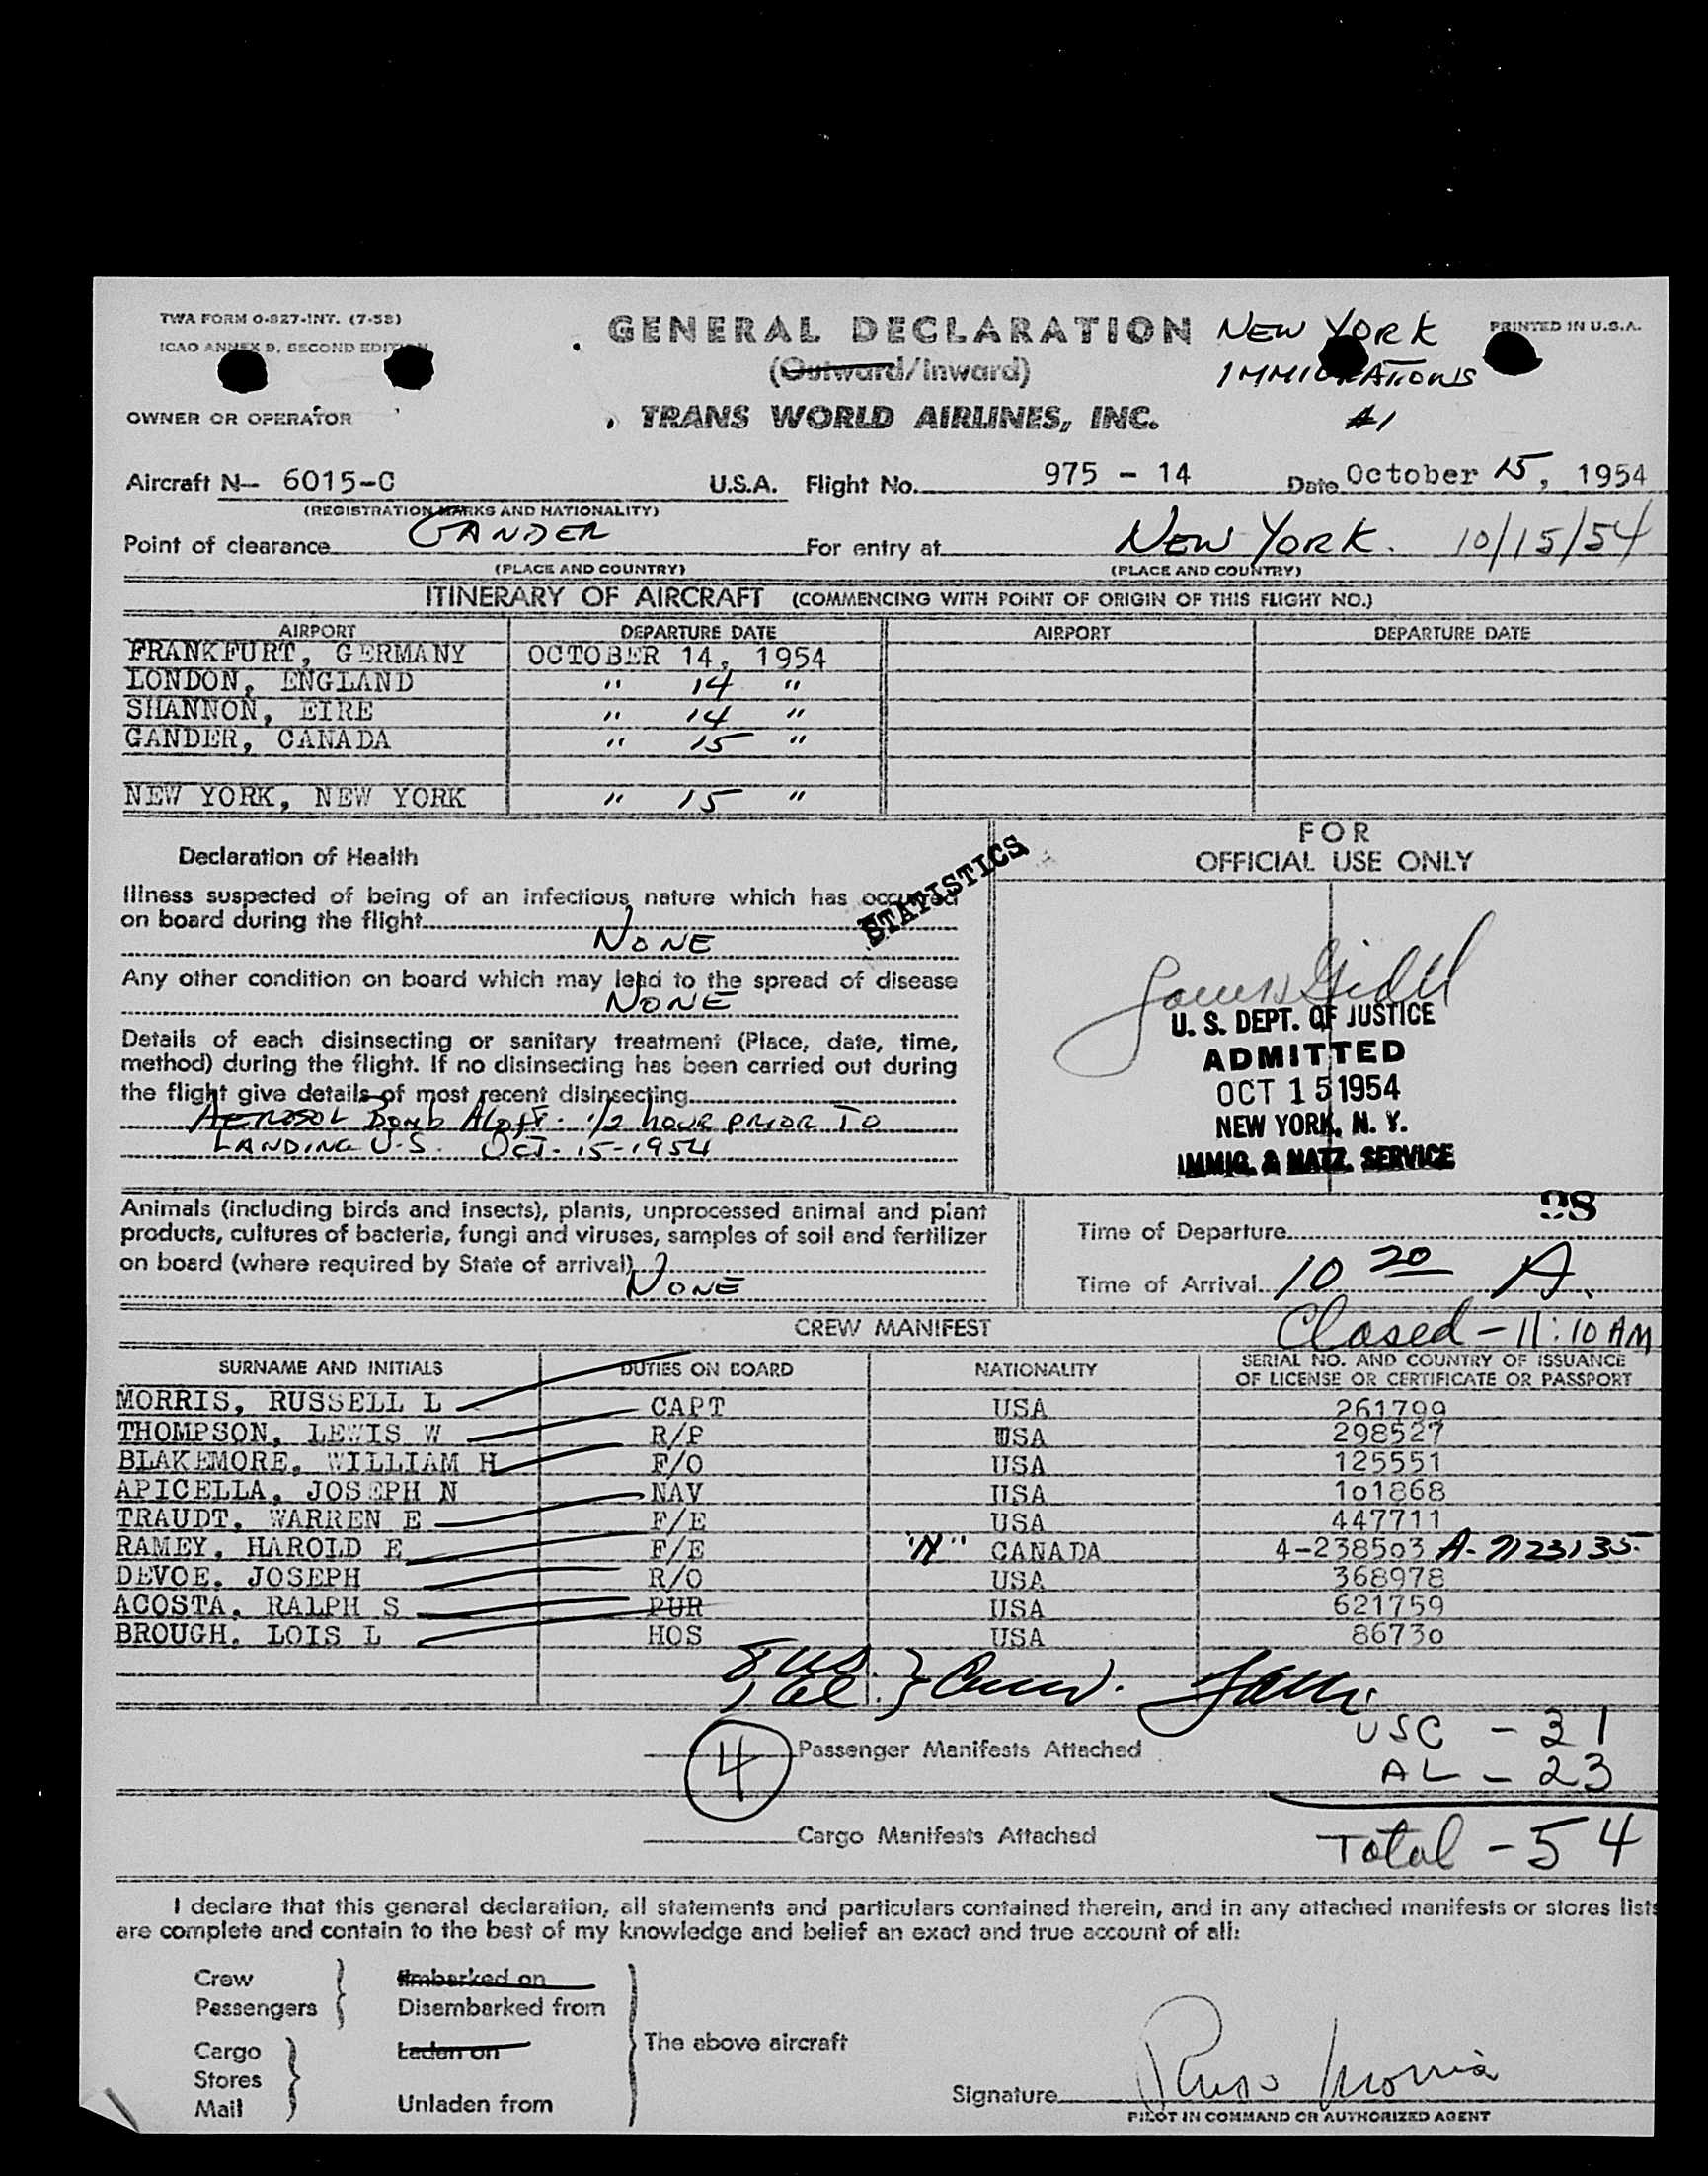 TWA FORM O-827-INT. (7-53)
ICAO ANNEX 9, SECOND EDITION
GENERAL DECLARATION
NEW YORK
PRINTED IN U.S.A.
(Outward/Inward)
IMMIGRATIONS
OWNER OR OPERATOR
TRANS WORLD AIRLINES, INC.
#1
Aircraft N- 6015-C U.S.A. Flight No. 975 - 14 Date October 15, 1954
(REGISTRATION MARKS AND NATIONALITY)
Point of clearance GANDER For entry at NEW YORK. 10/15/54
(PLACE AND COUNTRY) (PLACE AND COUNTRY)
ITINERARY OF AIRCRAFT (COMMENCING WITH POINT OF ORIGIN OF THIS FLIGHT NO.)
AIRPORT DEPARTURE DATE AIRPORT DEPARTURE DATE
FRANKFURT, GERMANY OCTOBER 14, 1954
LONDON, ENGLAND " 14 "
SHANNON, EIRE " 14 "
GANDER, CANADA " 15 "
NEW YORK, NEW YORK " 15 "
Declaration of Health
Illness suspected of being of an infectious nature which has occurred
on board during the flight
NONE
Any other condition on board which may lead to the spread of disease
NONE
Details of each disinsecting or sanitary treatment (Place, date, time,
method) during the flight. If no disinsecting has been carried out during
the flight give details of most recent disinsecting
AEROSOL Bomb Aloft - 1/2 HOUR PRIOR TO
LANDING U.S. OCT-15-1954
STATISTICS
FOR
OFFICIAL USE ONLY
U. S. DEPT. OF JUSTICE
ADMITTED
OCT 15 1954
NEW YORK, N. Y.
IMMIG. & NATZ. SERVICE
Animals (including birds and insects), plants, unprocessed animal and plant
products, cultures of bacteria, fungi and viruses, samples of soil and fertilizer
on board (where required by State of arrival)
NONE
Time of Departure
Time of Arrival 10 20 A.
Closed - 11:10 AM
CREW MANIFEST
SURNAME AND INITIALS DUTIES ON BOARD NATIONALITY SERIAL NO. AND COUNTRY OF ISSUANCE
OF LICENSE OR CERTIFICATE OR PASSPORT
MORRIS, RUSSELL L CAPT USA 261799
THOMPSON, LEWIS W R/P USA 298527
BLAKEMORE, WILLIAM H F/O USA 125551
APICELLA, JOSEPH N NAV USA 101868
TRAUDT, WARREN E F/E USA 447711
RAMEY, HAROLD E F/E "N" CANADA 4-238503 A-7123135
DEVOE, JOSEPH R/O USA 368978
ACOSTA, RALPH S PUR USA 621759
BROUGH, LOIS L HOS USA 86730
8 US.
1 al. } Crew.
USC - 31
4 Passenger Manifests Attached
AL - 23
Cargo Manifests Attached
Total - 54
I declare that this general declaration, all statements and particulars contained therein, and in any attached manifests or stores lists
are complete and contain to the best of my knowledge and belief an exact and true account of all:
Crew Embarked on
Passengers Disembarked from
Cargo Laden on The above aircraft
Stores
Mail Unladen from
Signature Russ Morris
PILOT IN COMMAND OR AUTHORIZED AGENT